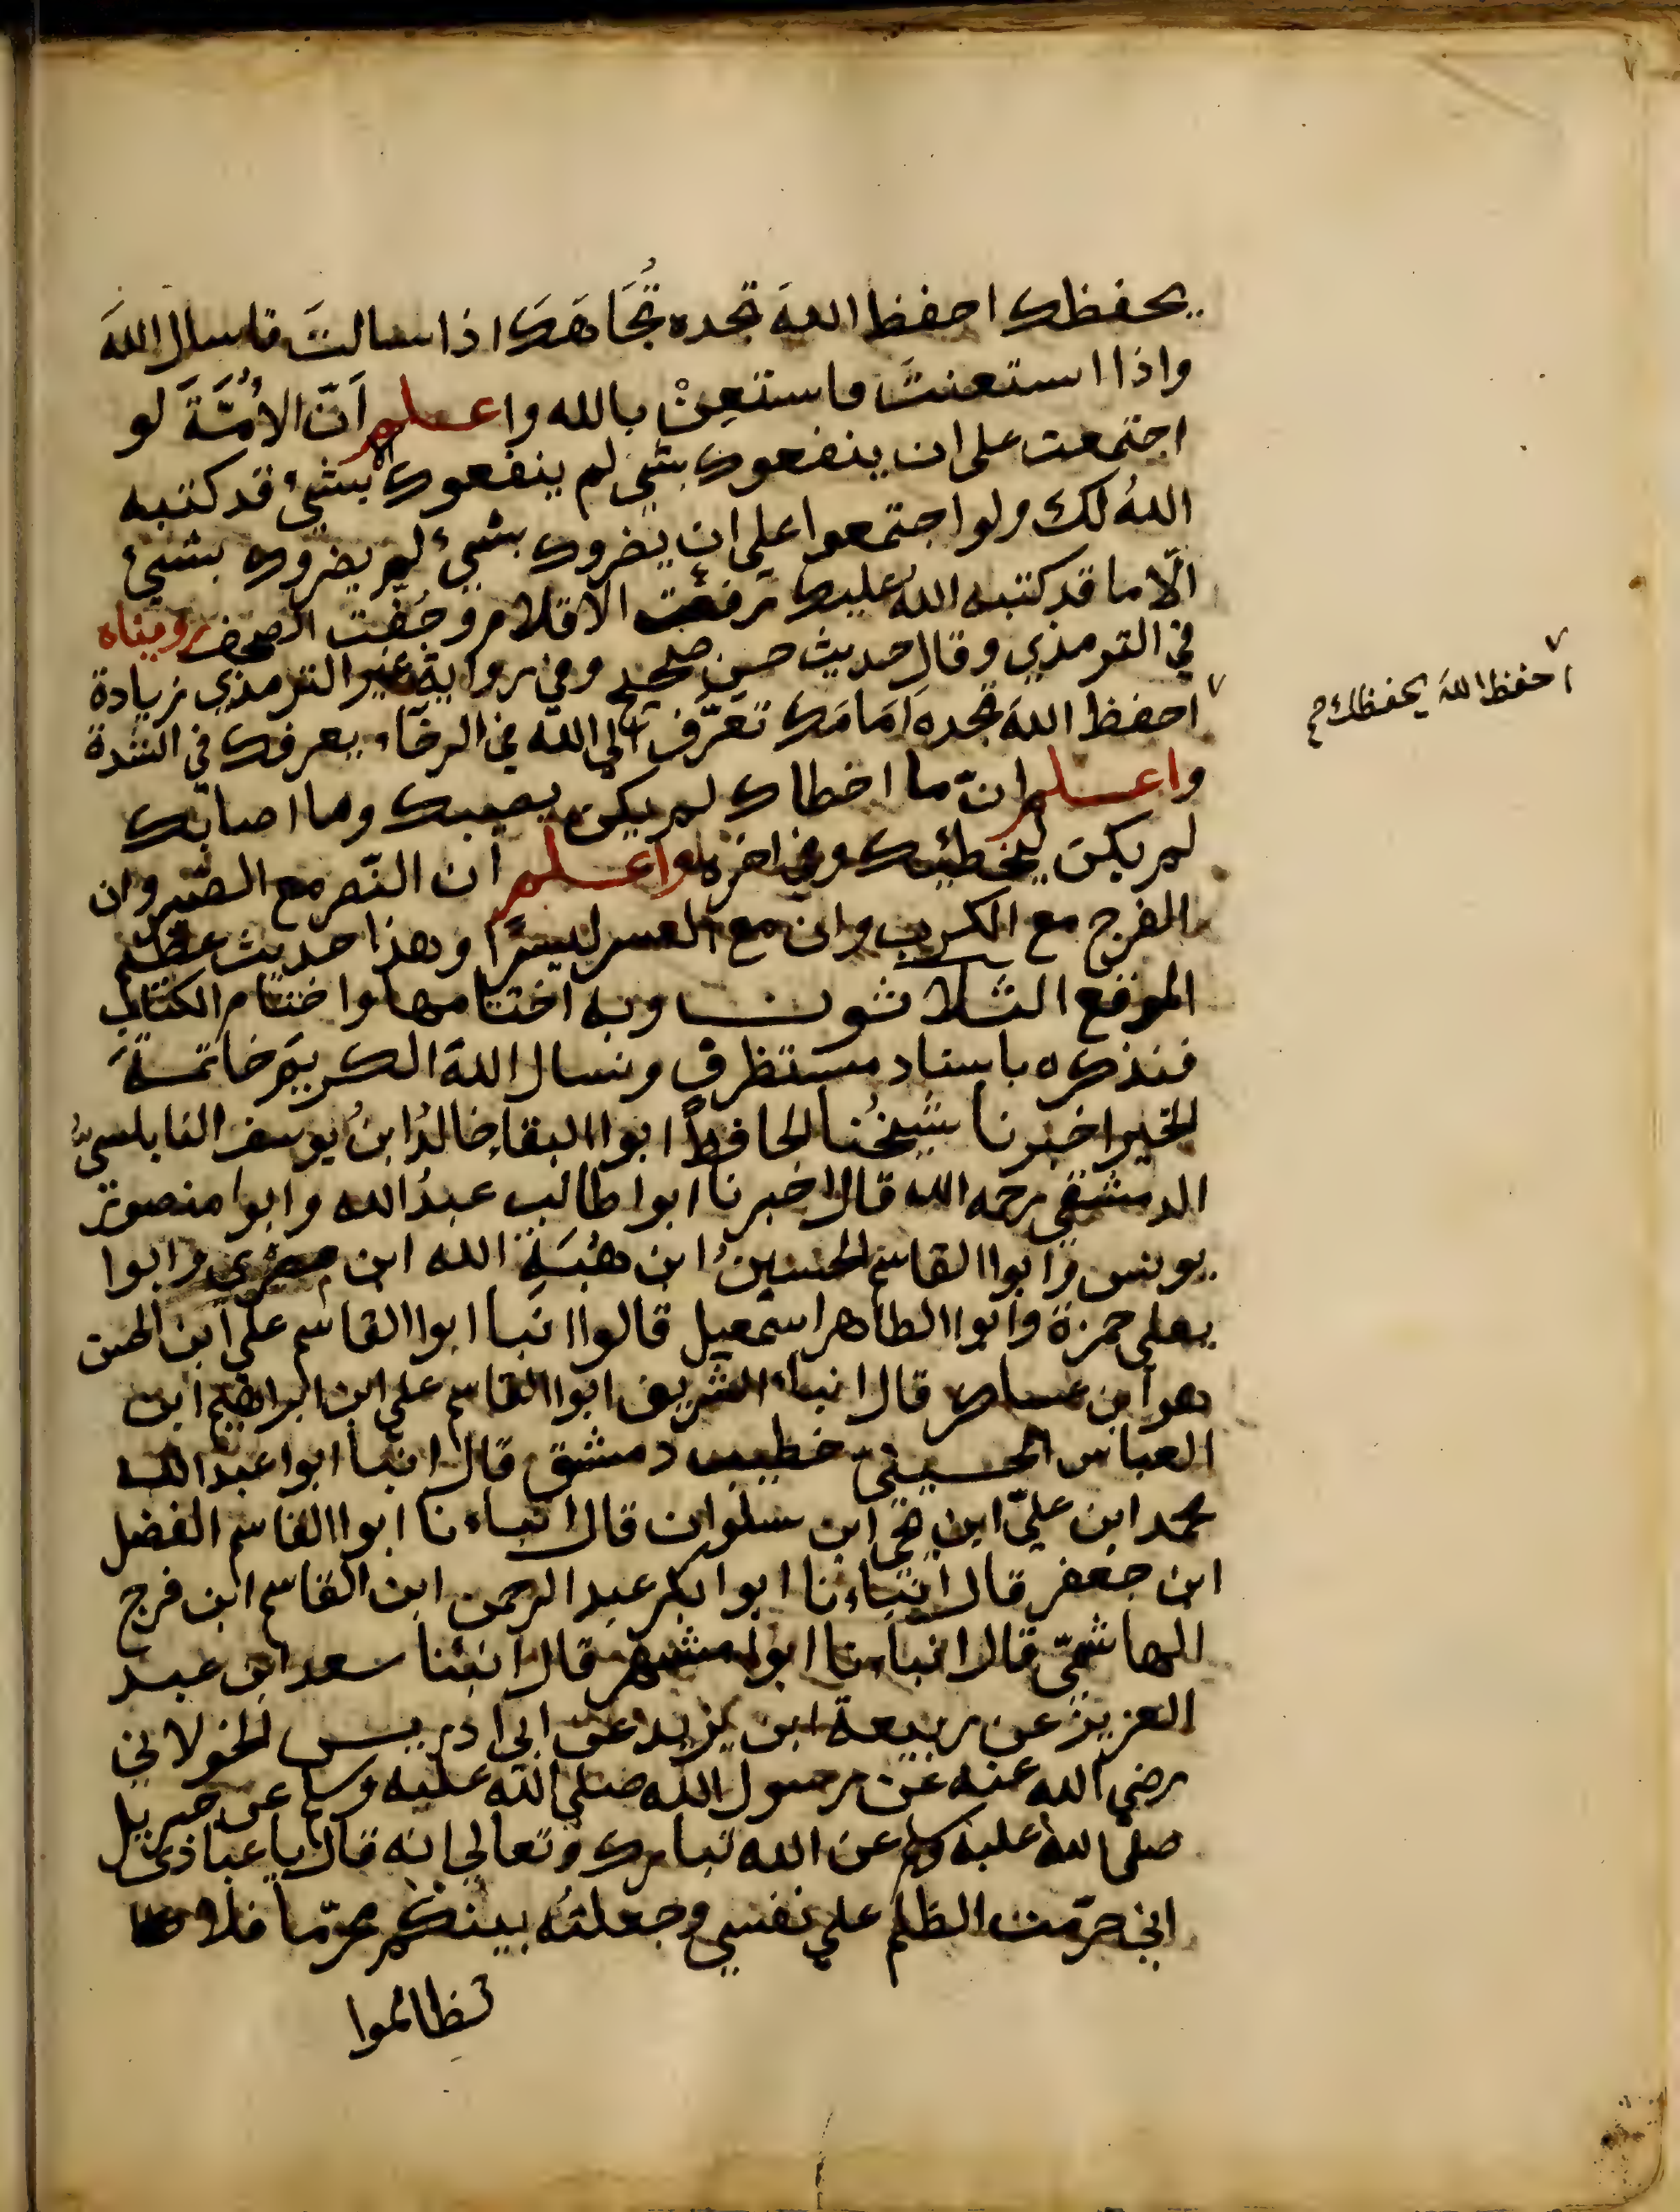 يحفظك احفظ اللهَ تجده تُجَاهَكَ اذا سالتَ فاسال اللهَ
واذا استعنتَ فاستعِنْ بالله واعلم اَنّ الاُمَّةَ لو
اجتمعت على ان ينفعوك بشيٍ لم ينفعوك الا بشيءٍ قد كتبه
اللهُ لك ولو اجتمعوا على ان يضروك بشيءٍ لم يضروك بشيءٍ
الّا ما قد كتبه اللهُ عليك رفعت الاقلام وجُفّت الصحف رويناه
في الترمذي وقال حديث حسن صحيح وفي رواية غير الترمذي زيادة
احفظ اللهَ تجده اَمَامَك تعرّف الى الله في الرخآء يعرفك في الشدة
احفظ اللهَ يحفظك
واعلم انّ ما اخطاك لم يكن يصيبك وما اصابك
لم يكن ليخطئك وفي اخره واعلم ان النّصر مع الصّبر وان
الفرج مع الكرب وان مع العسر ليسرًا وهذا حديث عظيم
الموقع الثلاثون وبه اختتامها واختتام الكتاب
فنذكره باسناد مستظرف ونسال اللهَ الكريمَ خاتمةَ
الخير اخبرنا شيخُنا الحافظُ ابوا البقاء خالدُ ابنُ يوسف النابلسيُّ
الدمشقي رحمه الله قال اخبرنا ابوا طالب عبدُ الله وابوا منصور
يونس وابوا القاسم الحسينُ ابن هُبَةِ الله ابن مصري وابوا
يعلى حمزة وابوا الطاهر اسمعيل قالوا انبا ابوا القاسم على ابن الحسن
هو ابن عساكر قال انباء الشريف ابوا القاسم على ابن ابراهيم ابن
العباس الحسيني خطيب دمشق قال انبا ابوا عبد الله
محمد ابن عليّ ابن يحيى ابن سلوان قال انباءنا ابوا القاسم الفضل
ابن جعفر قال انباءنا ابوا بكر عبد الرحمن ابن القاسم ابن فرج
الهاشميّ قال انباءنا ابوا مشهر قال انبئنا سعد ابن عبد
العزيز عن ربيعة ابن يزيد عن ابي ادريس الخولاني
رضي الله عنه عن رسول الله صلى الله عليه وسلم عن جبريل
صلى الله عليه وسلم عن الله تبارك وتعالى انه قال يا عبادى
اني حرّمت الظلم على نفسي وجعلتُه بينكم محرّما فلا
تظالموا